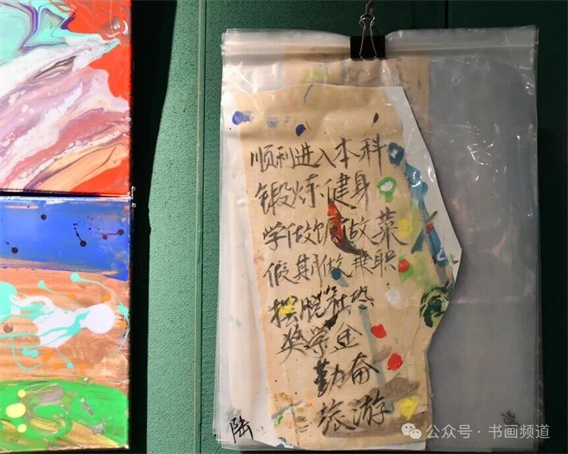 顺利进入本科
锻炼.健身
学做饭做菜
假期做兼职.
摆脱社恐
奖学金
勤奋
旅游
陆
公众号·书画频道